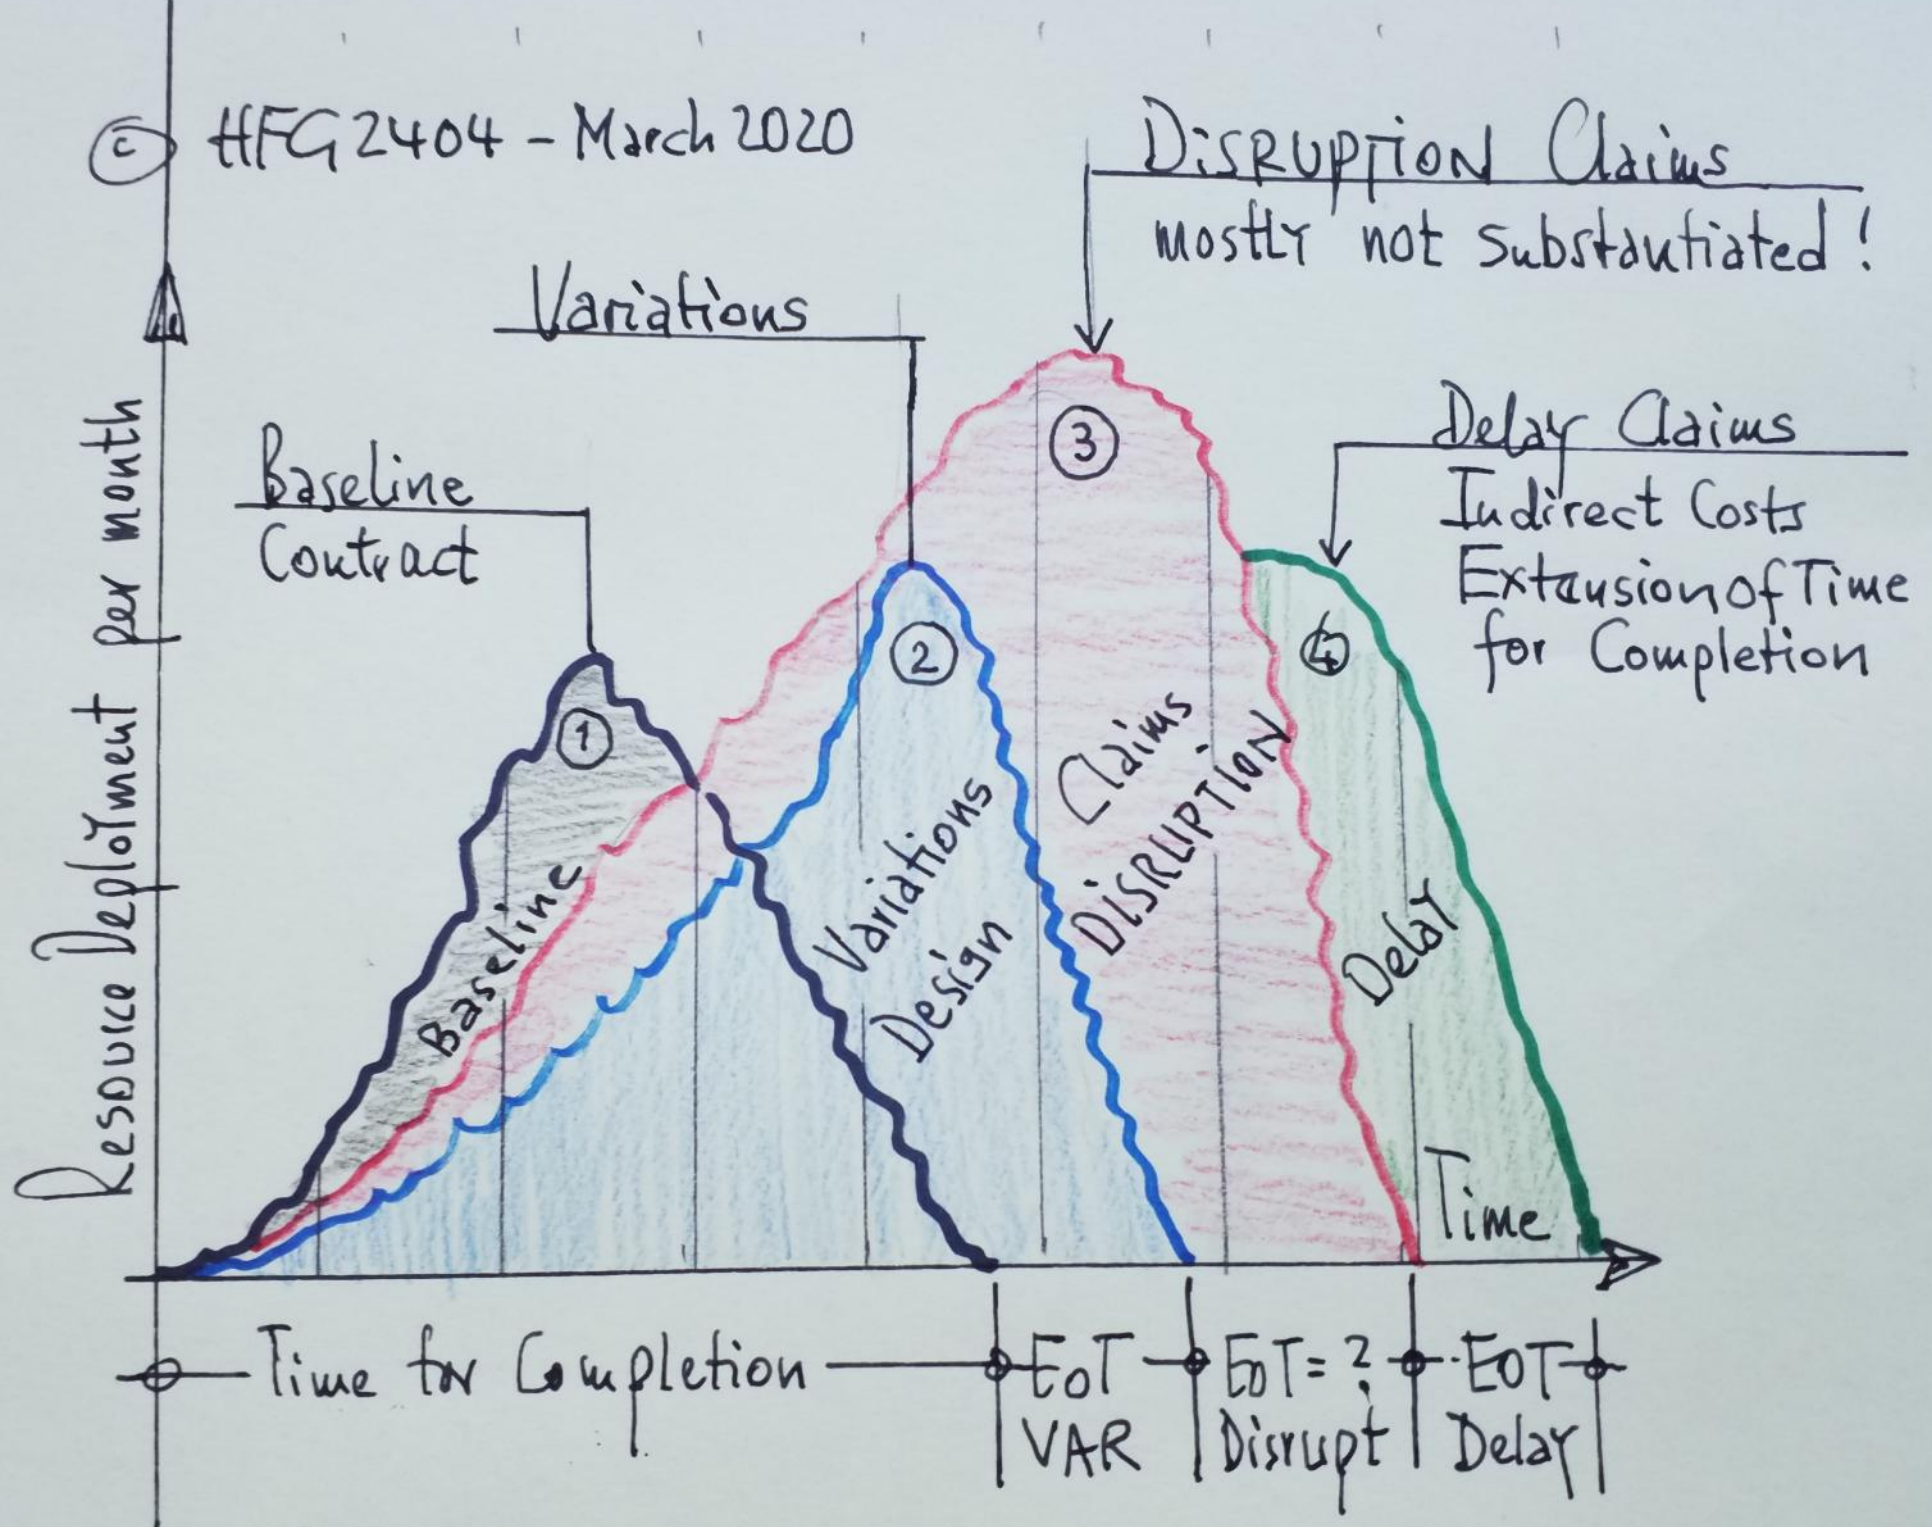 © HFG2404 - March 2020
DISRUPTION Claims
mostly not substantiated!
Variations
Baseline
Contract
Delay Claims
Indirect Costs
Extension of Time
for Completion
Resource Deployment per month
1
2
3
4
Baseline
Variations
Design
Claims
DISRUPTION
Delay
Time
Time for Completion
EoT
VAR
EoT = ?
Disrupt
EoT
Delay